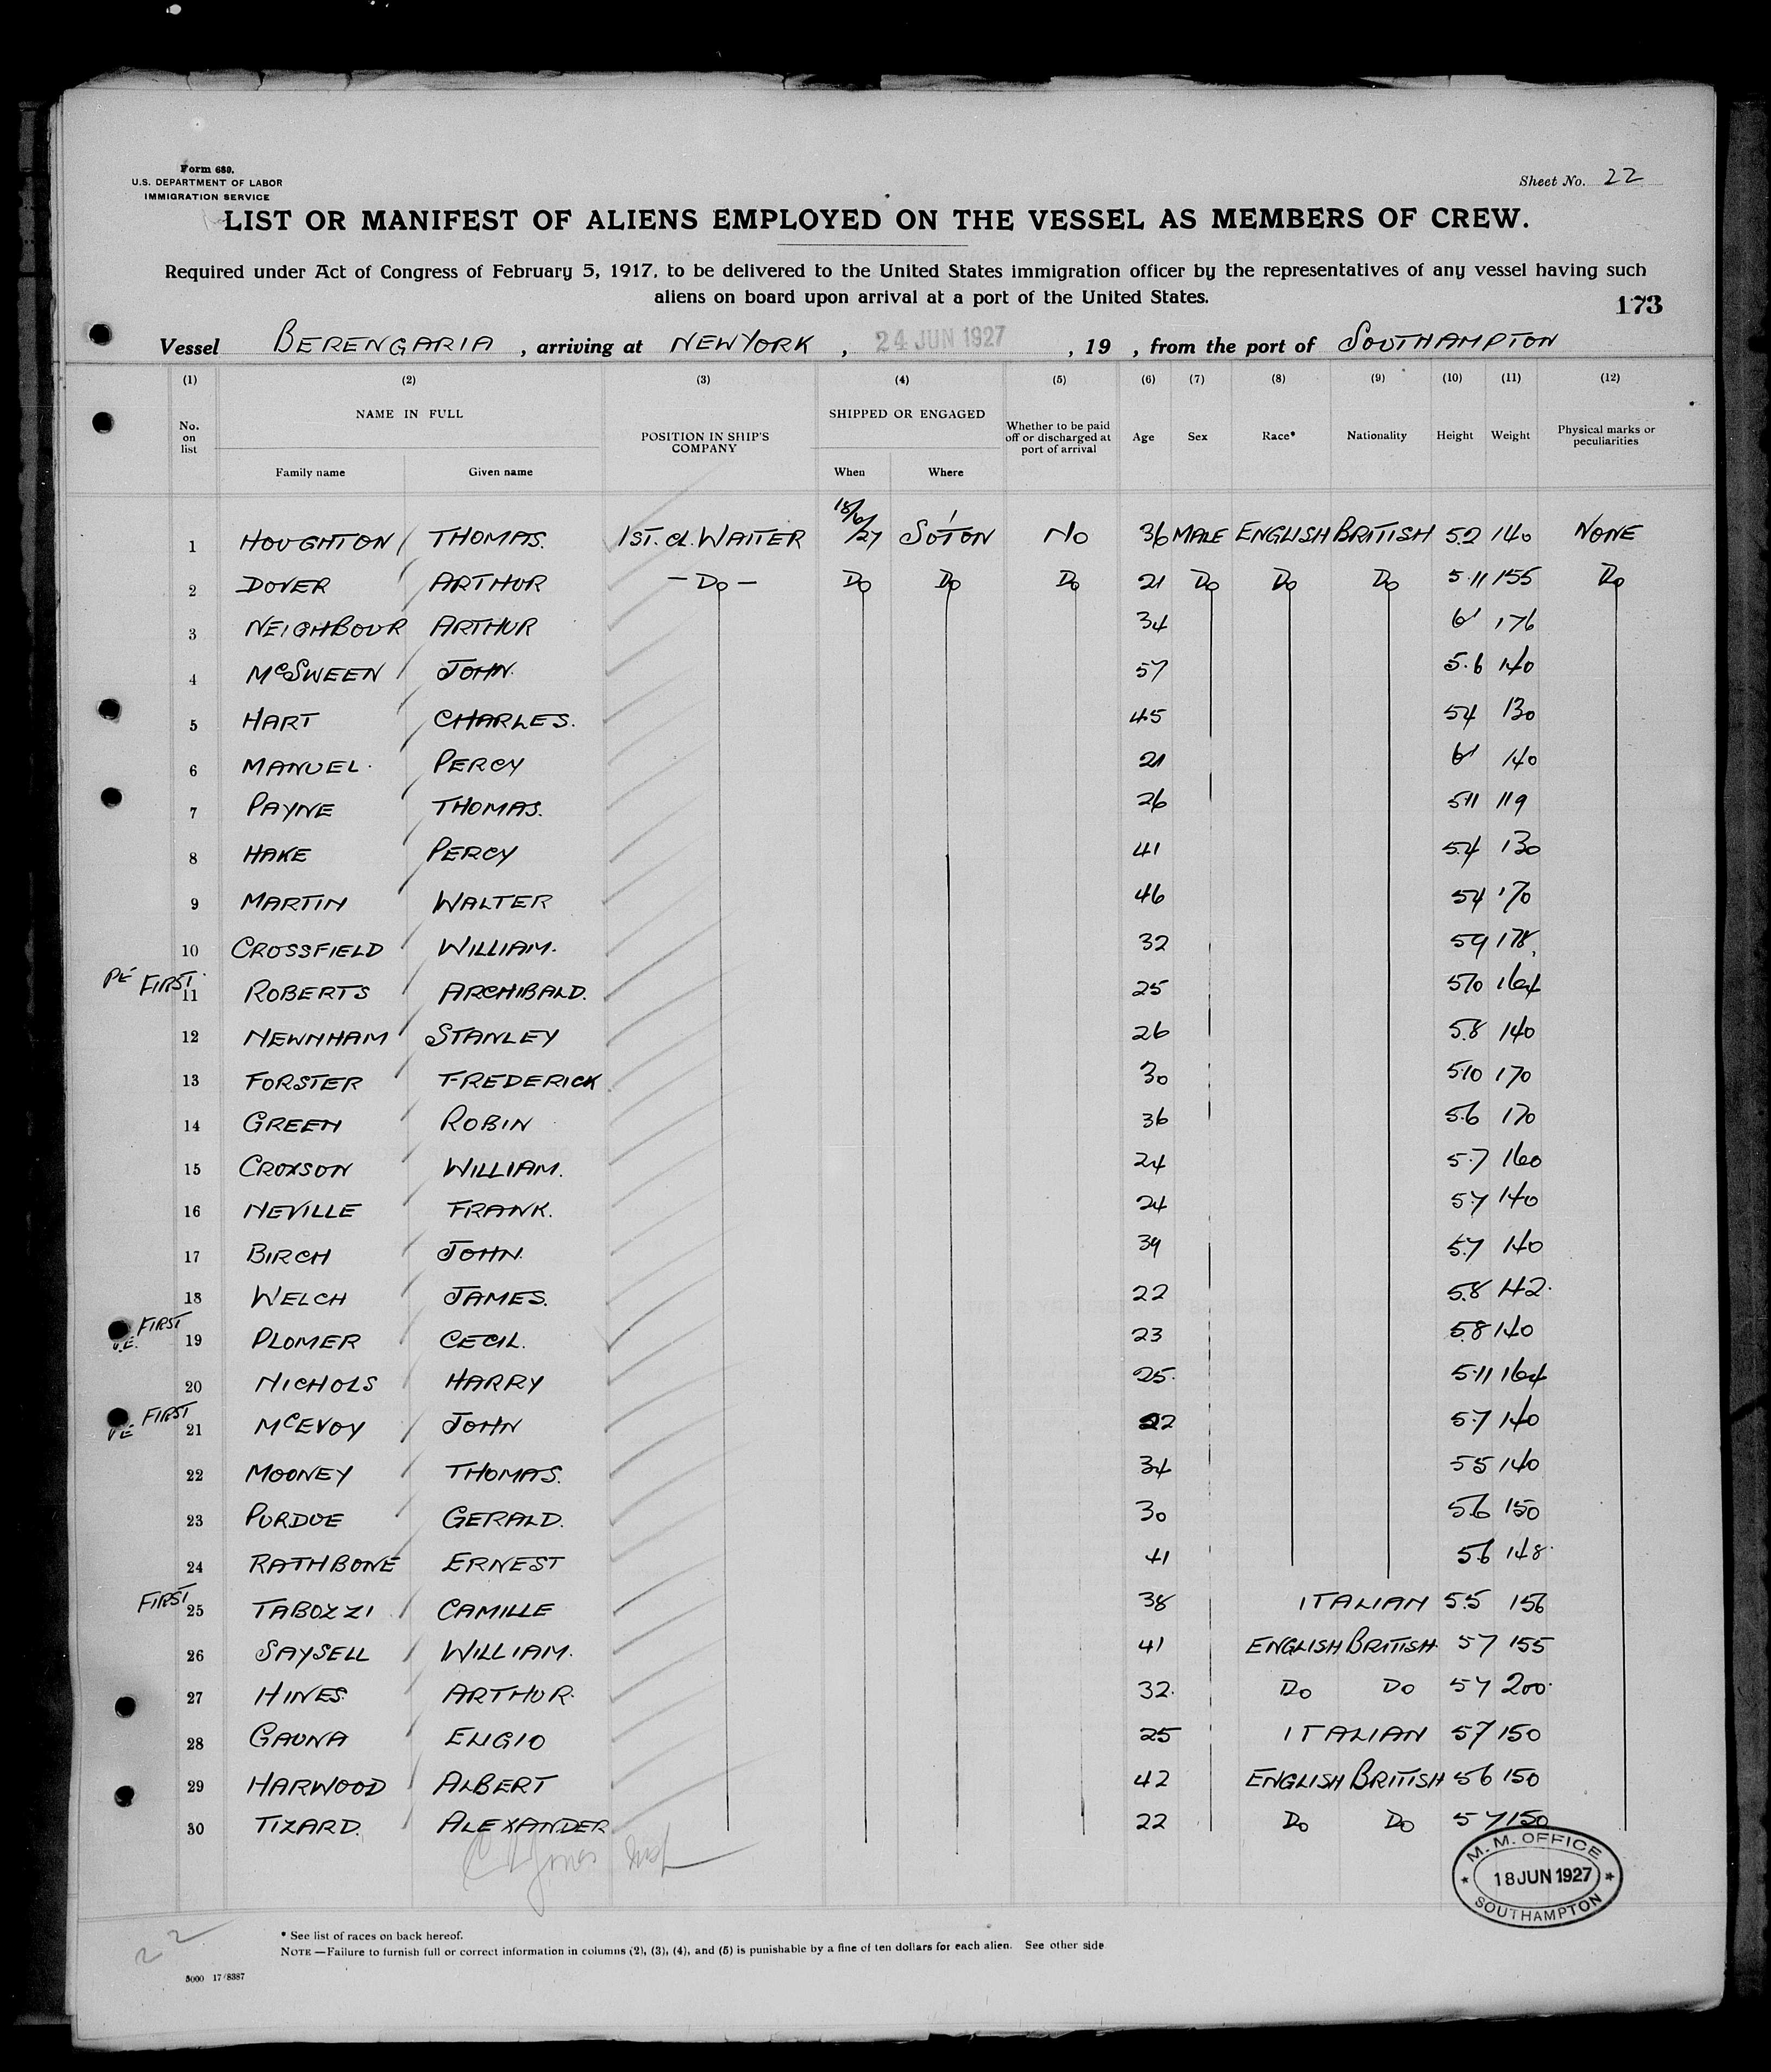 Form 680.
U.S. DEPARTMENT OF LABOR
IMMIGRATION SERVICE
Sheet No. 22
LIST OR MANIFEST OF ALIENS EMPLOYED ON THE VESSEL AS MEMBERS OF CREW.
Required under Act of Congress of February 5, 1917, to be delivered to the United States immigration officer by the representatives of any vessel having such
aliens on board upon arrival at a port of the United States.
173
Vessel BERENGARIA , arriving at NEW YORK , 24 JUN 1927 , 19 , from the port of SOUTHAMPTON
(1) (2) (3) (4) (5) (6) (7) (8) (9) (10) (11) (12)
No. on list NAME IN FULL Family name Given name POSITION IN SHIP'S COMPANY SHIPPED OR ENGAGED When Where Whether to be paid off or discharged at port of arrival Age Sex Race* Nationality Height Weight Physical marks or peculiarities
1 HOUGHTON THOMAS. 1ST. Cl. WAITER 18/6/27 SO'TON NO 36 MALE ENGLISH BRITISH 5.2 140 NONE
2 DOVER ARTHUR - Do - Do Do Do 21 Do Do Do 5.11 155 Do
3 NEIGHBOUR ARTHUR 34 6' 176
4 McSWEEN JOHN. 57 5.6 140
5 HART CHARLES. 45 54 130
6 MANUEL. PERCY 21 6' 140
7 PAYNE THOMAS. 26 511 119
8 HAKE PERCY 41 5.4 130
9 MARTIN WALTER 46 54 170
10 CROSSFIELD WILLIAM. 32 59 178
PE FIRST. 11 ROBERTS ARCHIBALD. 25 510 164
12 NEWNHAM STANLEY 26 5.8 140
13 FORSTER FREDERICK 30 510 170
14 GREEN ROBIN 36 5.6 170
15 CROXSON WILLIAM. 24 5.7 160
16 NEVILLE FRANK. 24 57 140
17 BIRCH JOHN. 39 5.7 140
18 WELCH JAMES. 22 5.8 142.
FIRST 19 PLOMER CECIL. 23 58 140
20 NICHOLS HARRY 25. 5.11 164
PE FIRST 21 McEVOY JOHN 22 5.7 140
22 MOONEY THOMAS. 34 55 140
23 PURDUE GERALD. 30 5.6 150
24 RATHBONE ERNEST 41 5.6 148.
FIRST 25 TABOZZI CAMILLE 38 ITALIAN 5.5 156
26 SAYSELL WILLIAM. 41 ENGLISH BRITISH. 57 155
27 HINES. ARTHUR. 32. Do Do 57 200.
28 GAUNA ELIGIO 25 ITALIAN 57 150
29 HARWOOD ALBERT 42 ENGLISH BRITISH 56 150
30 TIZARD. ALEXANDER 22 Do Do 57 150
M. M. OFFICE
18 JUN 1927
SOUTHAMPTON
22
* See list of races on back hereof.
NOTE —Failure to furnish full or correct information in columns (2), (3), (4), and (5) is punishable by a fine of ten dollars for each alien. See other side
5000 17/8387